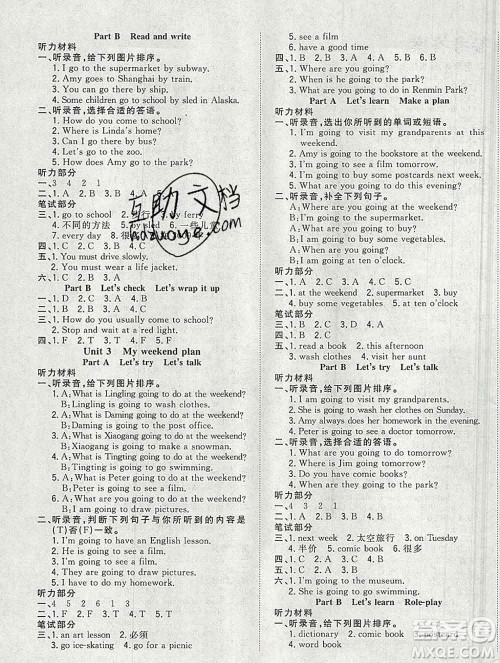 Part B Read and write
听力材料
一、听录音,给下列图片排序。
1. I go to the supermarket by subway.
2. Amy goes to Shanghai by train.
3. You can go there by ship.
4. Some children go to school by sled in Alaska.
二、听录音,选择合适的答语。
1. How do you come to school?
2. Where is Linda's home?
3. Can I go there by bus?
4. Let's go to the zoo.
5. How does Amy go to the park?
听力部分
一、3 4 2 1
二、1. C 2. A 3. B
笔试部分
一、1. go to school 2. by ferry
4. 不同的方法 5. by sled 6. 一些儿童
7. every day 8.
四、1. C 2. A
五、1. You must drive slowly.
2. You must wear a life jacket.
六、1. C 2. D 3. A 4. B
Part B Let's check Let's wrap it up
二、1. B 2. A 3. A
三、1. How do you usually come to school?
2. Stop and wait at a red light.
四、1. F 2. T 3. T 4. F 5. F
Unit 3 My weekend plan
Part A Let's try Let's talk
听力材料
一、听录音,给下列图片排序。
1. A:What is Lingling going to do at the weekend?
B:Lingling is going to wash clothes.
2. A:What is Daming going to do at the weekend?
B:Daming is going to see a film.
3. A:What is Xiaogang going to do at the weekend?
B:Xiaogang is going to make a snowman.
4. A:What is Tingting going to do at the weekend?
B:Tingting is going to go swimming.
5. A:What is Peter going to do at the weekend?
B:Peter is going to see a film.
6. A:What are you going to do at the weekend?
B:I'm going to draw pictures.
二、听录音,判断下列句子与你所听到的内容是
(T)否(F)一致。
1. I'm going to have an English lesson.
2. He is going to see a film.
3. I'm going to see a film.
4. They are going to draw some pictures.
5. They are going to go swimming.
听力部分
一、4 5 2 6 1 3
二、1. F 2. T 3. F 4. F 5. T
笔试部分
一、1. an art lesson 2. 必须
3. go ice-skating 4. go for a picnic
5. see a film
6. have a good time
四、1. C 2. D 3. B 4. A
五、1. Where are you going?
2. When are you going to the park?
3. What are you going to do in Renmin Park?
Part A Let's learn Make a plan
听力材料
一、听录音,选出你所听到的单词或短语。
1. I'm going to visit my grandparents at this
weekend.
2. Amy is going to the bookstore at the weekend.
3. We're going to wash clothes this morning.
4. I'm going to buy some postcards this afternoon.
5. What are you going to do this evening?
二、听录音,补全下列句子。
1. A:Where are you going?
B:I'm going to the supermarket.
2. A:What are you going to buy?
B:I'm going to buy some vegetables.
3. A:When are you going?
B:I'm going at ten o'clock.
听力部分
一、1. B 2. A 3. B 4. C 5. C
二、1. are going; supermarket 2. are; buy
buy some vegetables 3. at ten o'clock
笔试部分
一、1. read a book 2. this afternoon
3. wash clothes 4. visit her aunt
Part B Let's try Let's talk
听力材料
一、听录音,给下列图片排序。
1. I'm going to visit my grandparents.
2. She is going to wash her clothes on Sunday.
3. Amy always does her homework in the evening.
4. Peter is going to see a doctor tomorrow.
二、听录音,选择合适的答语。
1. What are you going to do tomorrow?
2. Where is Jim going tomorrow?
3. Do you have comic books?
4. When are you going?
听力部分
一、4 3 1 2
二、1. A 2. B 3. B 4. C
笔试部分
一、1. next week 2. 太空旅行 3. on Tuesday
4. 半价 5. comic book 6. 很多
二、1. B 2. D 3. C 4. A
三、1. I'm going to the museum.
3. I'm going by bike.
Part B Let's learn Role-play
一、1. dictionary 2. comic book
3. word book
互助文档